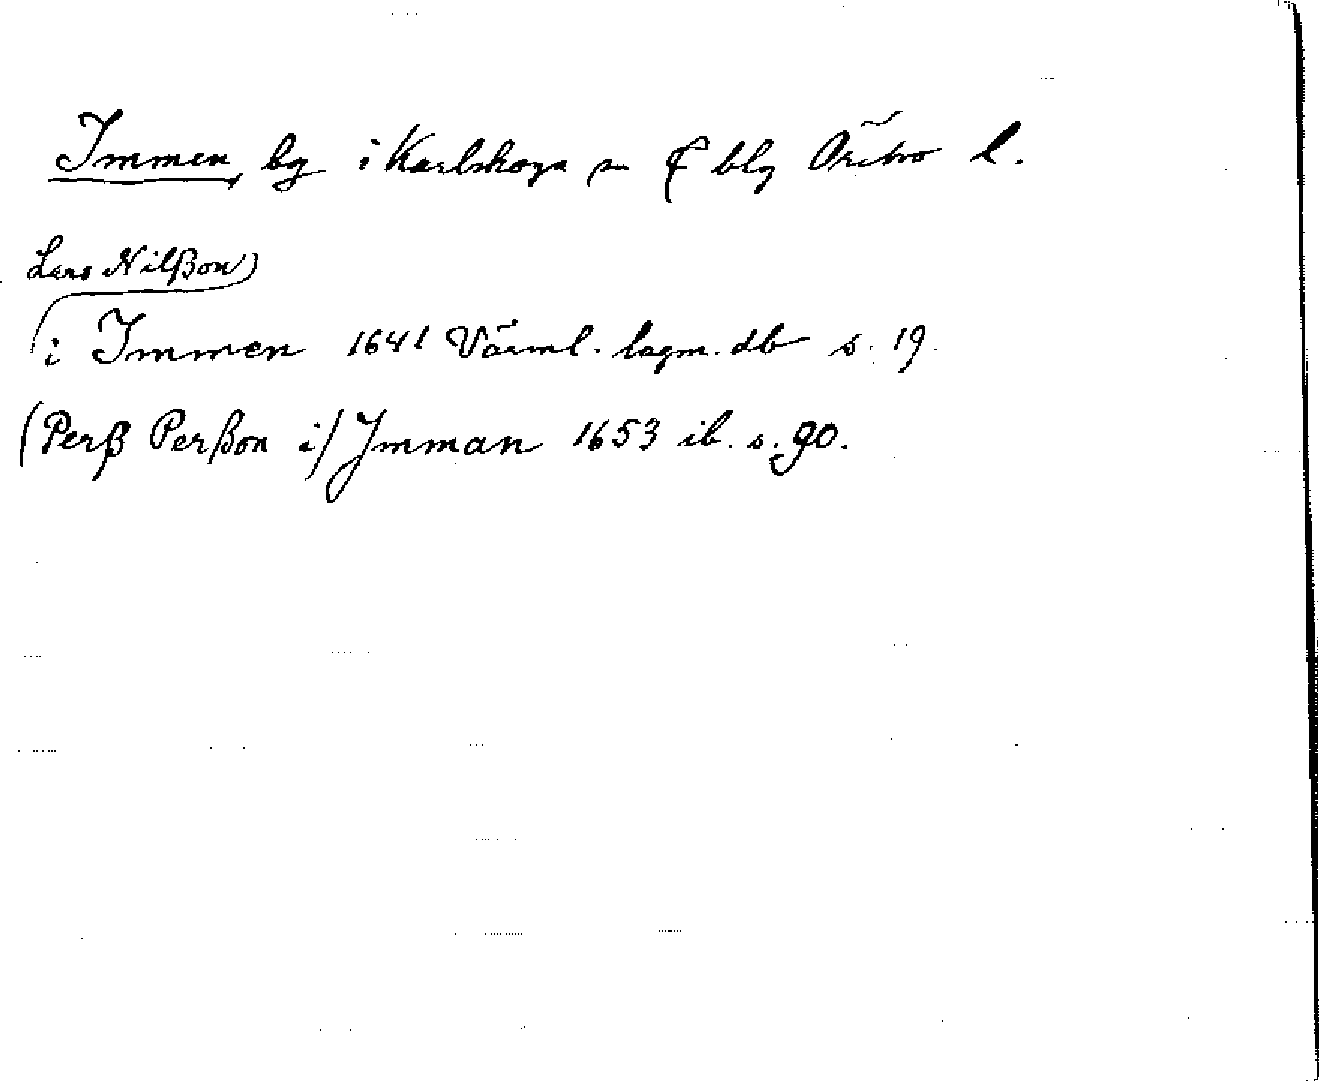 Immen, by i Karlskoga sn & blg Örebro l.
Lars Nilßon)
(i Immen 1641 Värml. lagm. db s. 19.
(Perß Perßon i) Jmman 1653 ib. s. 90.